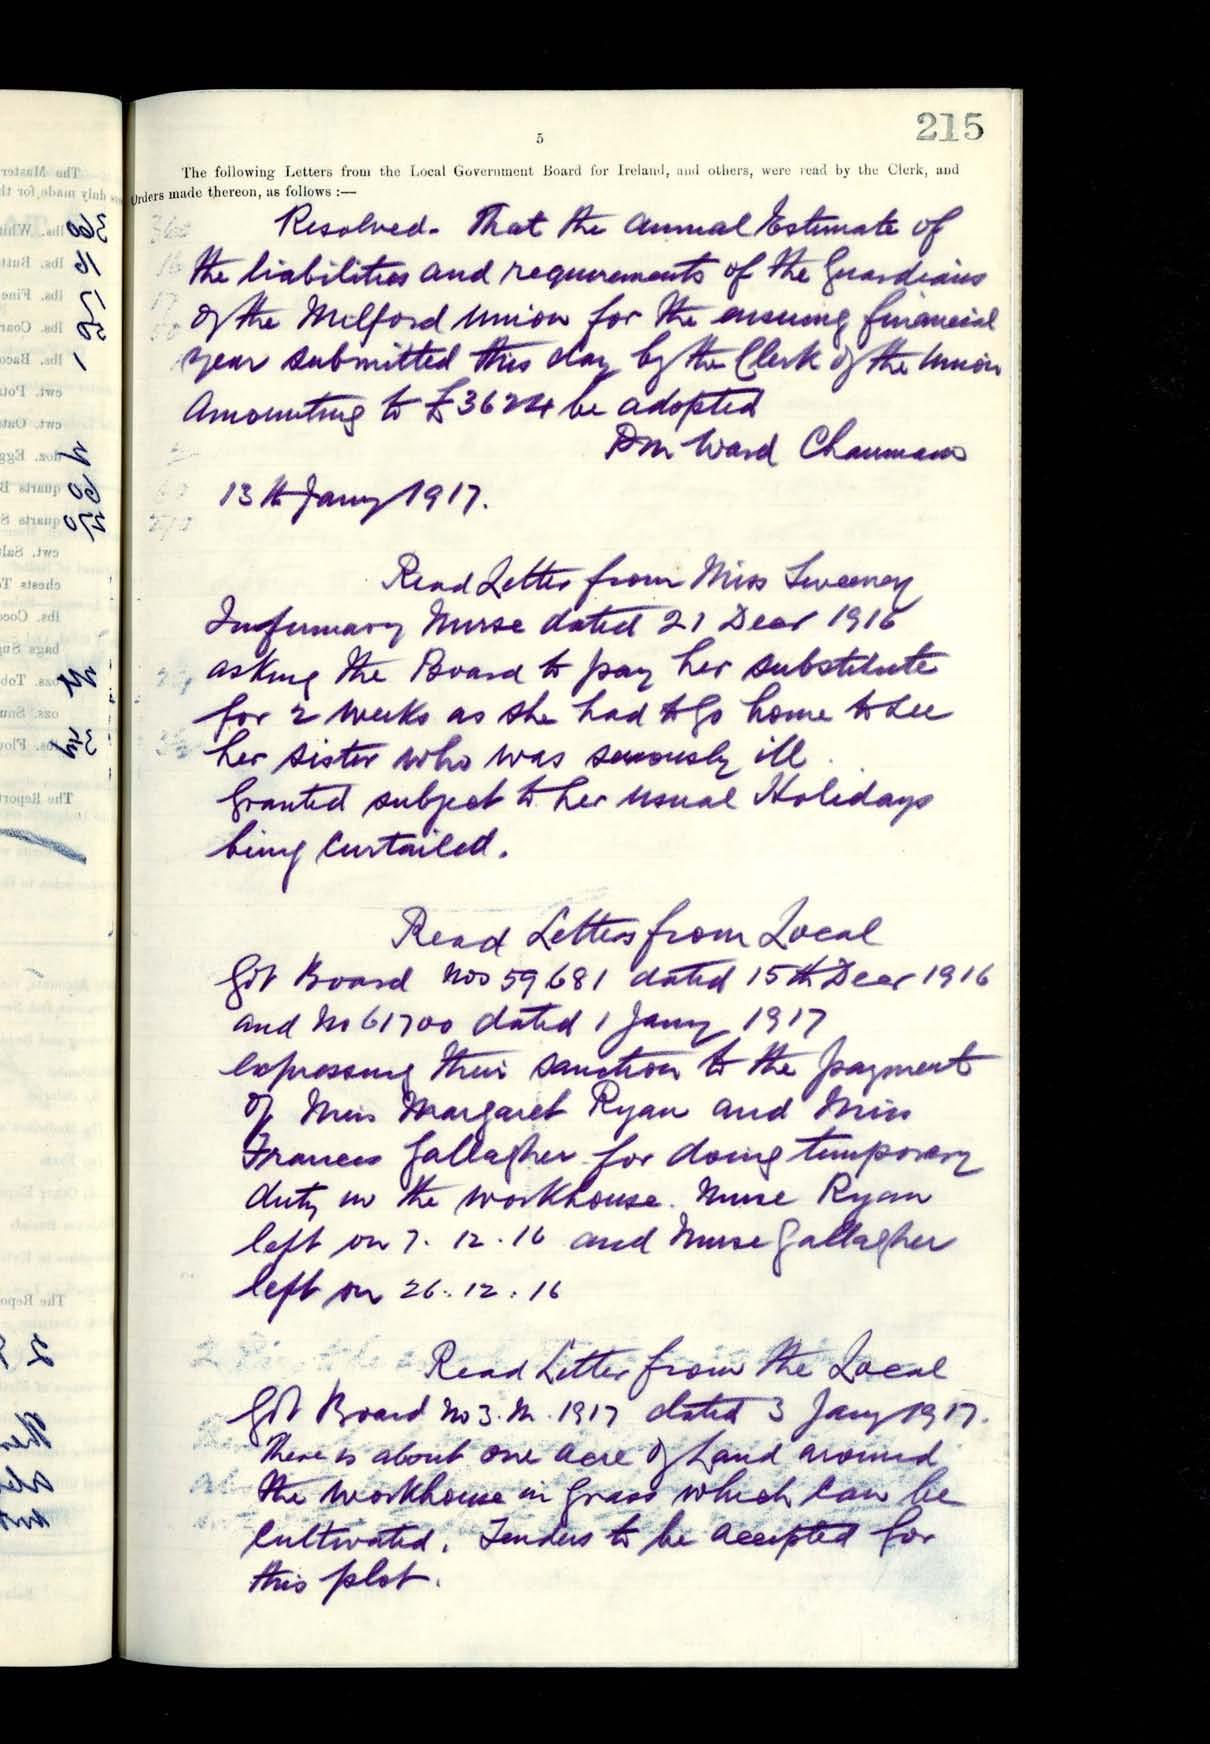 215
5
The following Letters from the Local Government Board for Ireland, and others, were read by the Clerk, and
Orders made thereon, as follows :—
Resolved. That the Annual Estimate of
the liabilities and requirements of the Guardians
of the Milford Union for the ensuing financial
year submitted this day by the Clerk of the Union
Amounting to £3624 be adopted
DM Ward Chairman
13th Jany 1917.
Read Letter from Miss Sweeney
Infirmary Nurse dated 21 Decr 1916
asking the Board to pay her substitute
for 2 weeks as she had to go home to see
her sister who was seriously ill.
Granted subject to her usual Holidays
being curtailed.
Read Letters from Local
Govt Board Nos 59681 dated 15th Decr 1916
and No 61700 dated 1 Jany 1917
expressing their sanction to the payment
of Miss Margaret Ryan and Miss
Frances Gallagher for doing temporary
duty in the workhouse. Nurse Ryan
left on 7.12.16 and Nurse Gallagher
left on 26.12.16
Read Letter from the Local
Govt Board No 3.M.1917 dated 3 Jany 1917.
There is about one acre of Land around
the workhouse in grass which can be
cultivated. Tenders to be accepted for
this plot.